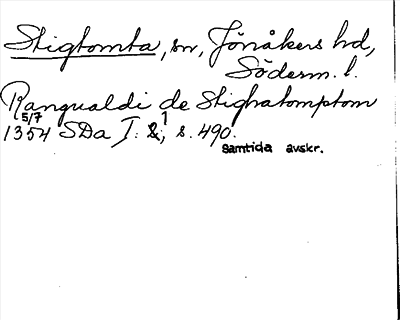 Stigtomta, sn, Jönåkers hd,
Söderm. l.
Rangualdi de Stighatomptom
5/7 1
1354 SDa I: &, s. 490.
Samtida avskr.